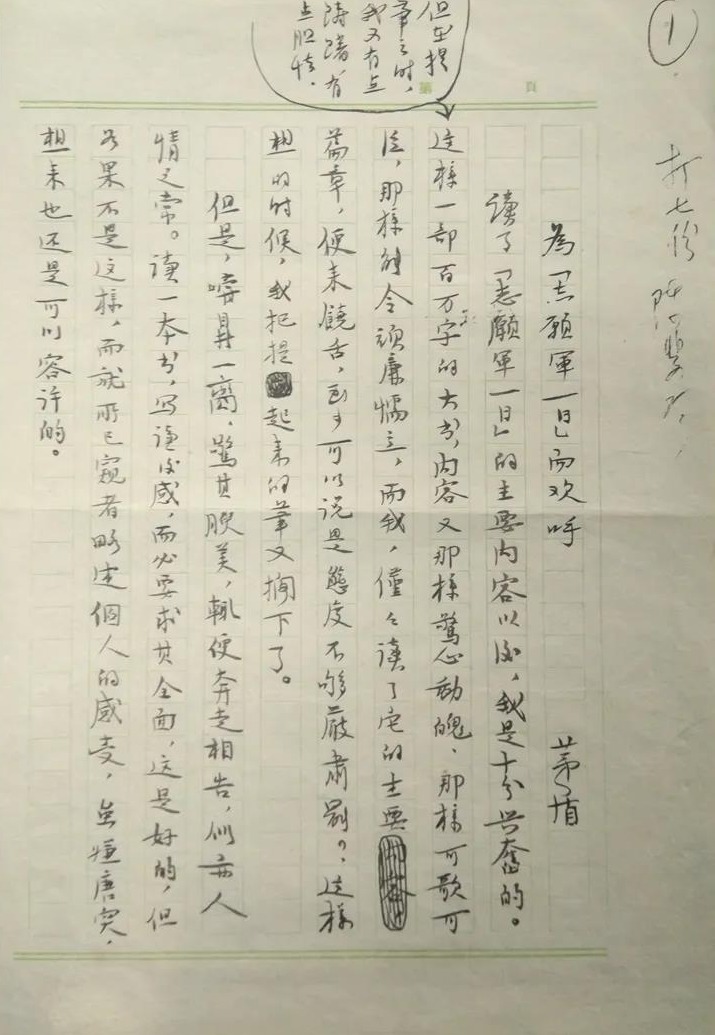 1
打七份
為「志願軍一日」而欢呼
茅盾
讀了「志願軍一日」的主要内容以後，我是十分兴奮的。
但在提
筆之时，
我又有点
躊躇，有
点胆怯。
第 頁
这樣一部百万字的大书，内容又那樣驚心動魄、那樣可歌可
泣，那樣能令頑廉懦立，而我，僅々讀了它的主要
篇章，便来饒舌，至少可以说是態度不够嚴肅罢？这樣
想的时候，我把提起来的筆又擱下了。
但是，嚐鼎一臠，驚其腴美，輒便奔走相告，似亦人
情之常。讀一本书，写讀後感，而必要求其全面，这是好的，但
如果不是这樣，而就所已窺者略述個人的感受，虽嫌唐突，
想来也还是可以容许的。